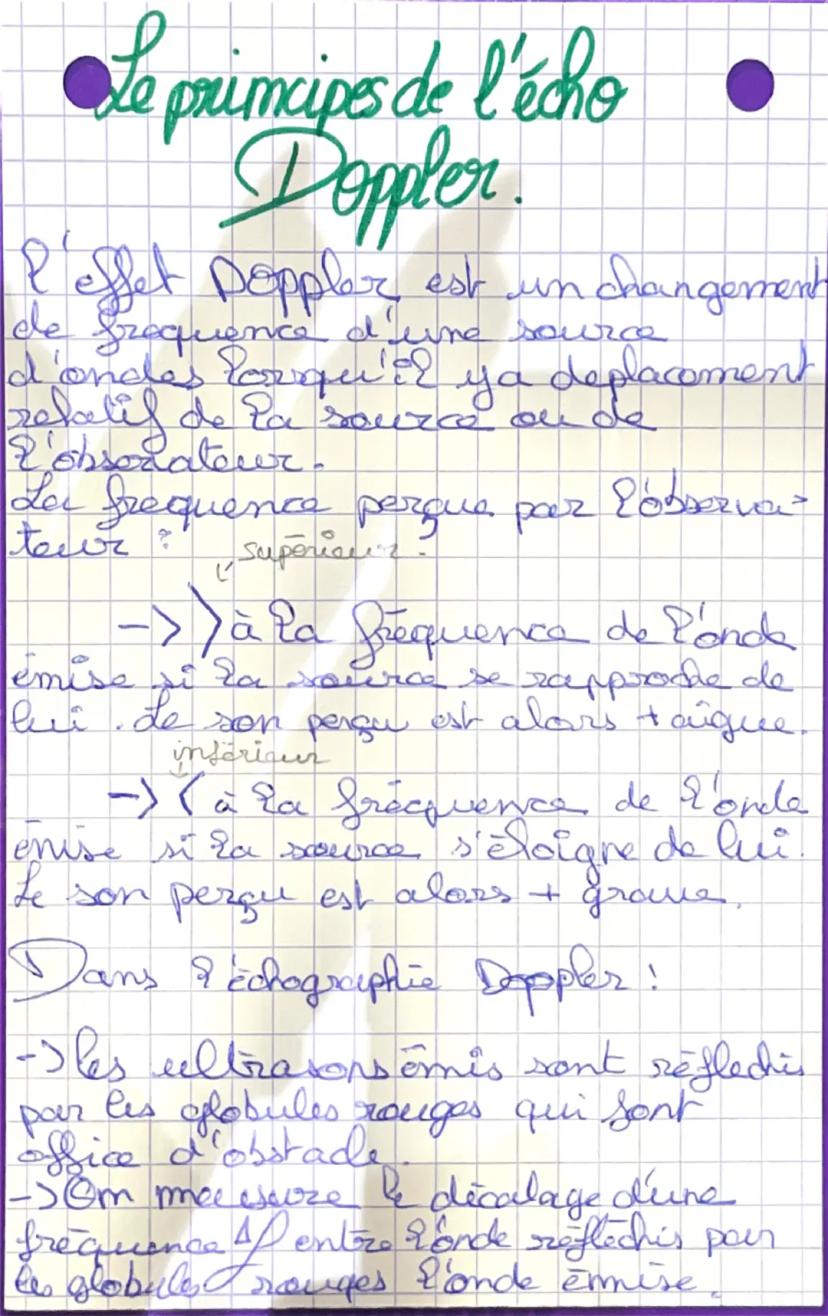 Le primcipes de l'écho
Doppler.
L'effet Doppler est un changement
de frequence d'une source
d'ondes lorsqu'il y a deplacement
relatif de la source ou de
l'observateur.
La frequence perçue par l'observa-
teur :
supérieur
-> > à la fréquence de l'onde
émise si la source se rapproche de
lui. Le son perçu est alors + aigue.
inférieur
-> < à la fréquence de l'onde
émise si la source s'éloigne de lui.
Le son perçu est alors + grave.
Dans l'échographie Doppler :
-> les ultrasons émis sont réflechis
par les globules rouges qui font
office d'obstacle.
-> On mesure le décalage d'une
fréquence Δf entre l'onde réfléchis par
les globules rouges l'onde émise.